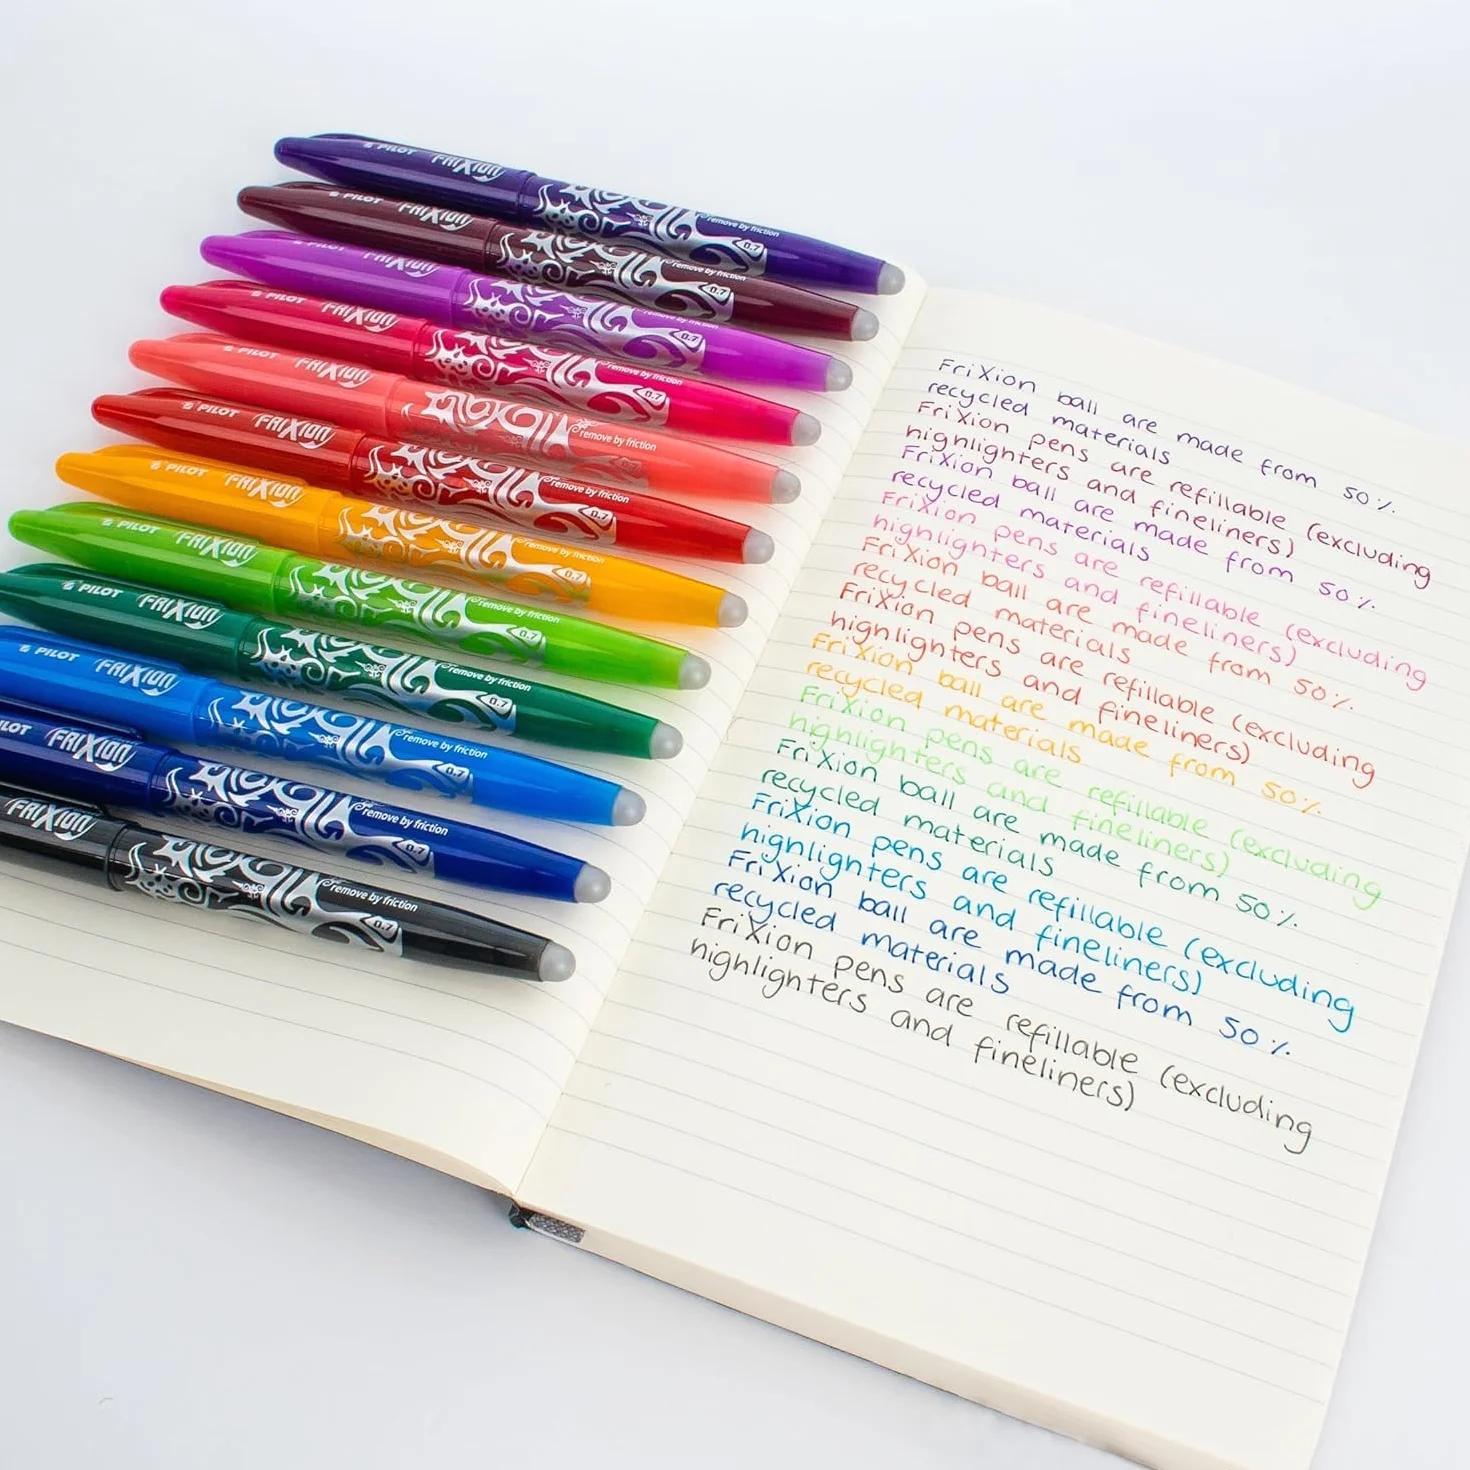 PILOT FRIXION remove by friction 0.7
PILOT FRIXION remove by friction 0.7
PILOT FRIXION remove by friction 0.7
PILOT FRIXION remove by friction 0.7
PILOT FRIXION remove by friction 0.7
PILOT FRIXION remove by friction 0.7
PILOT FRIXION remove by friction 0.7
PILOT FRIXION remove by friction 0.7
PILOT FRIXION remove by friction 0.7
PILOT FRIXION remove by friction 0.7
FRIXION remove by friction 0.7
FRIXION remove by friction 0.7
FriXion ball are made from 50%
recycled materials
FriXion pens are refillable (excluding
highlighters and fineliners)
FriXion ball are made from 50%
recycled materials
FriXion pens are refillable (excluding
highlighters and fineliners)
FriXion ball are made from 50%
recycled materials
FriXion pens are refillable (excluding
highlighters and fineliners)
FriXion ball are made from 50%
recycled materials
FriXion pens are refillable (excluding
highlighters and fineliners)
FriXion ball are made from 50%
recycled materials
FriXion pens are refillable (excluding
highlighters and fineliners)
FriXion ball are made from 50%
recycled materials
FriXion pens are refillable (excluding
highlighters and fineliners)